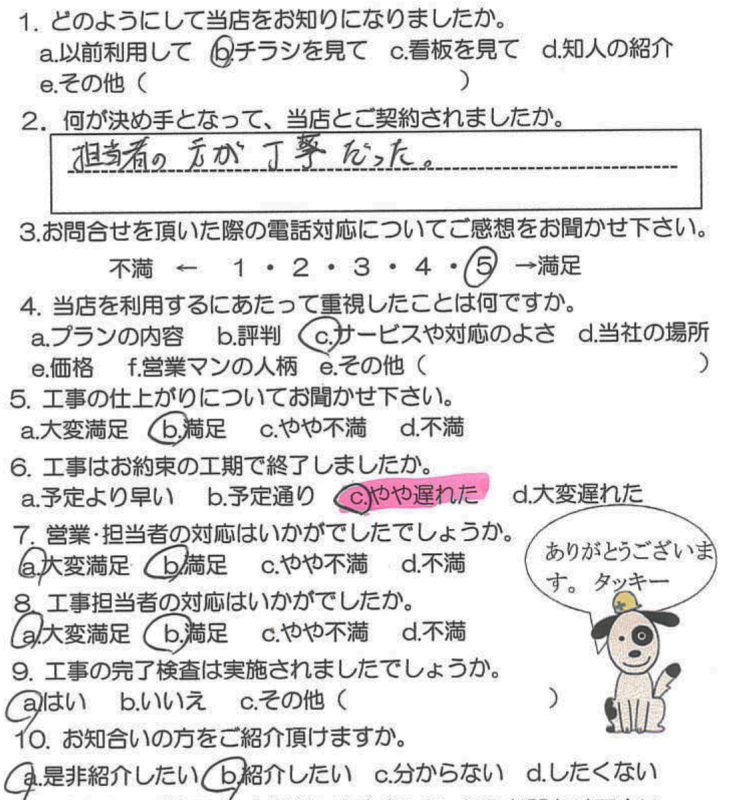 1. どのようにして当店をお知りになりましたか。
a.以前利用して b.チラシを見て c.看板を見て d.知人の紹介
e.その他（ ）
2. 何が決め手となって、当店とご契約されましたか。
担当者の方が丁寧だった。
3.お問合せを頂いた際の電話対応についてご感想をお聞かせ下さい。
不満 ← 1・2・3・4・5 →満足
4. 当店を利用するにあたって重視したことは何ですか。
a.プランの内容 b.評判 c.サービスや対応のよさ d.当社の場所
e.価格 f.営業マンの人柄 e.その他（ ）
5. 工事の仕上がりについてお聞かせ下さい。
a.大変満足 b.満足 c.やや不満 d.不満
6. 工事はお約束の工期で終了しましたか。
a.予定より早い b.予定通り c.やや遅れた d.大変遅れた
7. 営業・担当者の対応はいかがでしたでしょうか。
a.大変満足 b.満足 c.やや不満 d.不満
8. 工事担当者の対応はいかがでしたか。
a.大変満足 b.満足 c.やや不満 d.不満
9. 工事の完了検査は実施されましたでしょうか。
a.はい b.いいえ c.その他（ ）
10. お知合いの方をご紹介頂けますか。
a.是非紹介したい b.紹介したい c.分からない d.したくない
ありがとうございま
す。タッキー